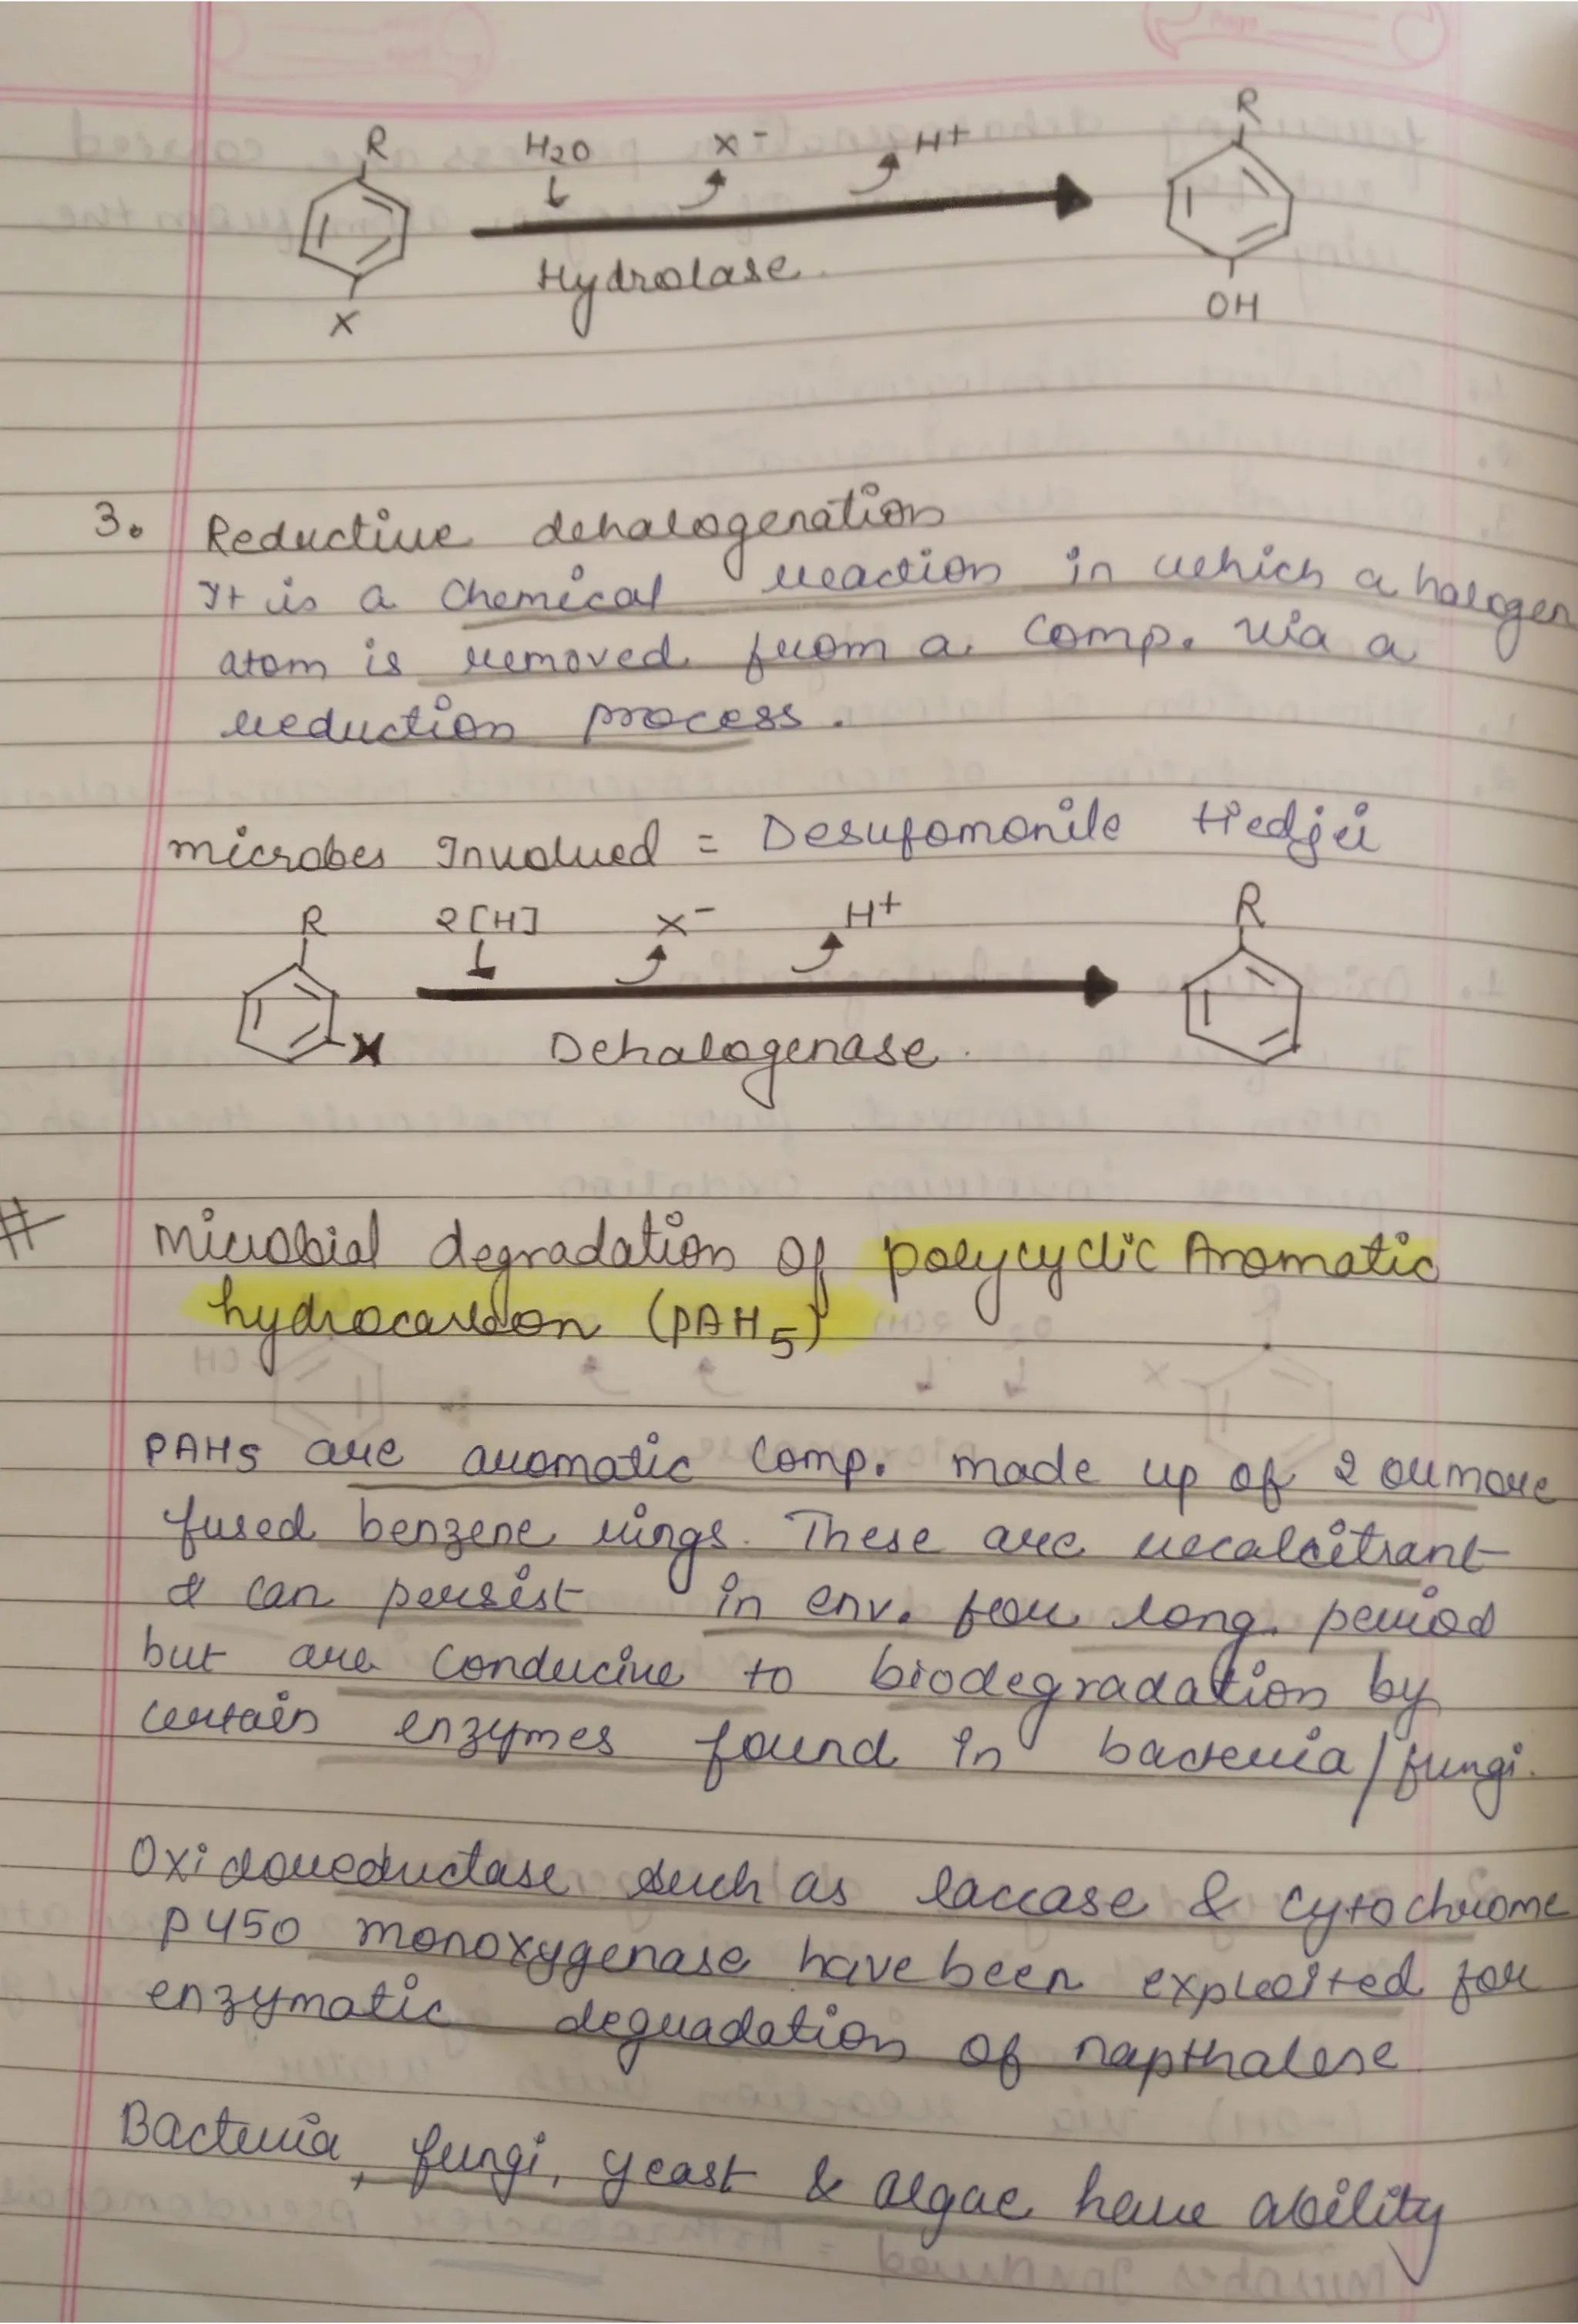 R H2O X- H+ R
Hydrolase.
X OH
3. Reductive dehalogenation
It is a Chemical reaction in which a halogen
atom is removed from a comp. via a
reduction process.
microbes Involved = Desufomonile tiedjei
R 2[H] X- H+ R
X Dehalogenase.
# Microbial degradation of polycyclic Aromatic
hydrocarbon (PAH5)
PAHs are aromatic comp. made up of 2 or more
fused benzene rings. These are recalcitrant
& can persist in env. for long period
but are conducive to biodegradation by
certain enzymes found in bacteria/fungi.
Oxidoreductase such as laccase & cytochrome
P450 monoxygenase have been exploited for
enzymatic degradation of napthalene
Bacteria, fungi, yeast & algae have ability